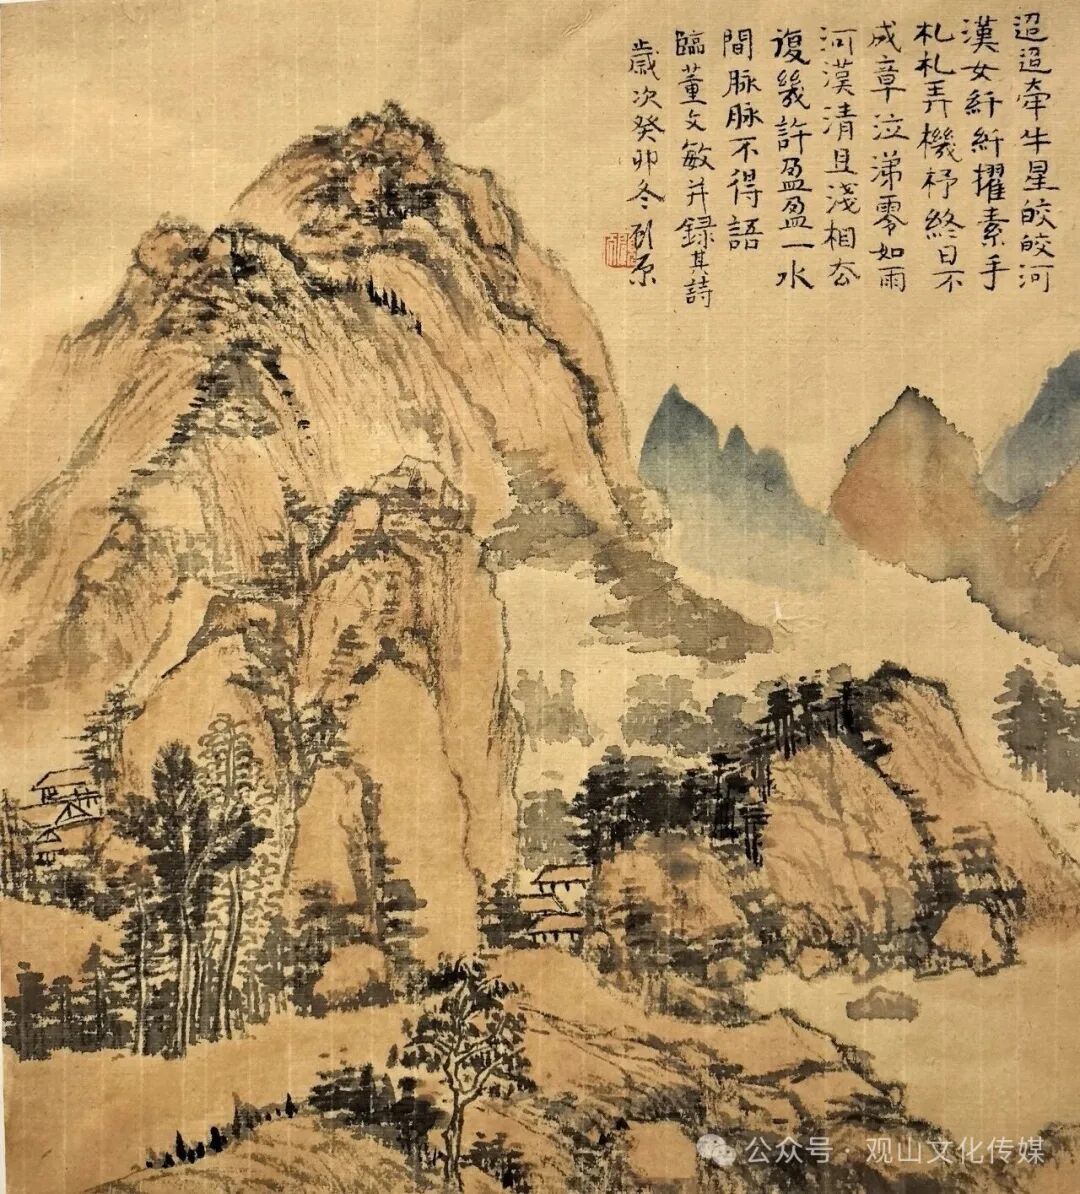 迢迢牽牛星皎皎河
漢女纤纤擢素手
札札弄機杼終日不
成章泣涕零如雨
河漢清且淺相去
復幾許盈盈一水
間脉脉不得語
臨董文敏并録其詩
歲次癸卯冬
公众号 · 观山文化传媒